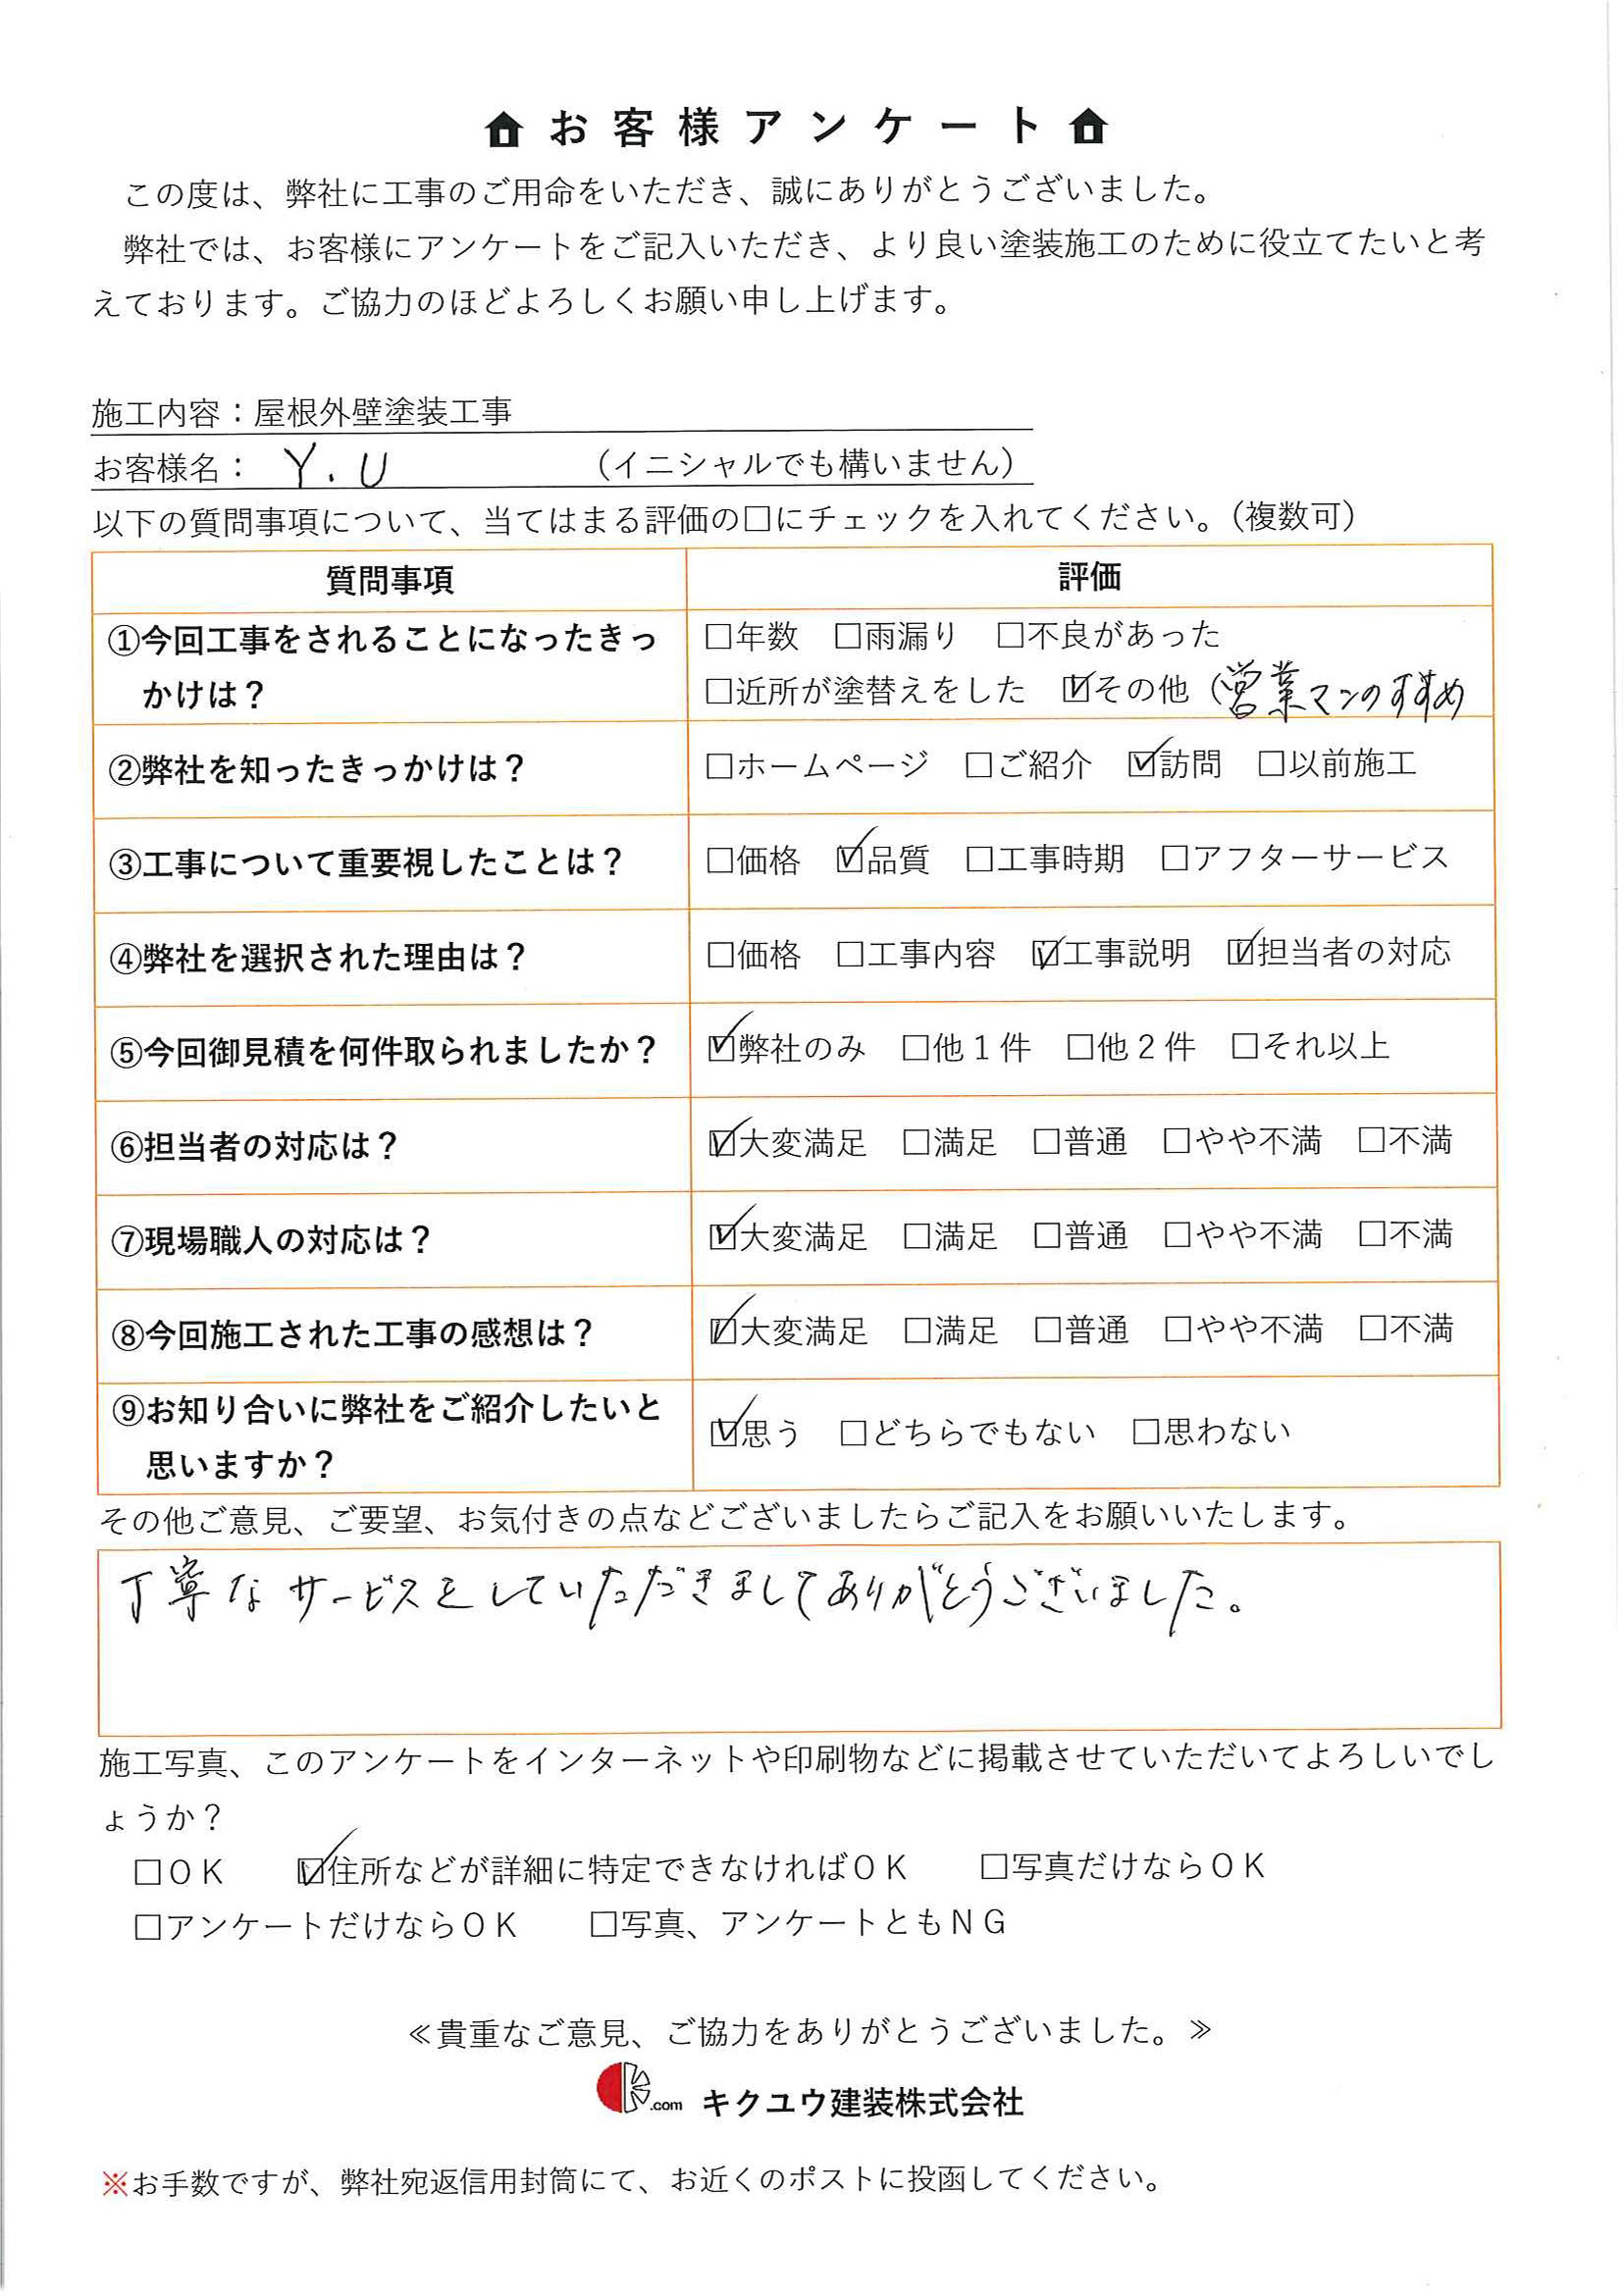 お客様アンケート
この度は、弊社に工事のご用命をいただき、誠にありがとうございました。
弊社では、お客様にアンケートをご記入いただき、より良い塗装施工のために役立てたいと考
えております。ご協力のほどよろしくお願い申し上げます。
施工内容：屋根外壁塗装工事
お客様名： Y.U （イニシャルでも構いません）
以下の質問事項について、当てはまる評価の□にチェックを入れてください。（複数可）
質問事項 評価
①今回工事をされることになったきっ
かけは？
□年数 □雨漏り □不良があった
□近所が塗替えをした ☑その他（営業マンのすすめ
②弊社を知ったきっかけは？ □ホームページ □ご紹介 ☑訪問 □以前施工
③工事について重要視したことは？ □価格 ☑品質 □工事時期 □アフターサービス
④弊社を選択された理由は？ □価格 □工事内容 ☑工事説明 ☑担当者の対応
⑤今回御見積を何件取られましたか？ ☑弊社のみ □他１件 □他２件 □それ以上
⑥担当者の対応は？ ☑大変満足 □満足 □普通 □やや不満 □不満
⑦現場職人の対応は？ ☑大変満足 □満足 □普通 □やや不満 □不満
⑧今回施工された工事の感想は？ ☑大変満足 □満足 □普通 □やや不満 □不満
⑨お知り合いに弊社をご紹介したいと
思いますか？
☑思う □どちらでもない □思わない
その他ご意見、ご要望、お気付きの点などございましたらご記入をお願いいたします。
丁寧なサービスをしていただきましてありがとうございました。
施工写真、このアンケートをインターネットや印刷物などに掲載させていただいてよろしいでし
ょうか？
□ＯＫ ☑住所などが詳細に特定できなければＯＫ □写真だけならＯＫ
□アンケートだけならＯＫ □写真、アンケートともＮＧ
≪貴重なご意見、ご協力をありがとうございました。≫
.com キクユウ建装株式会社
※お手数ですが、弊社宛返信用封筒にて、お近くのポストに投函してください。